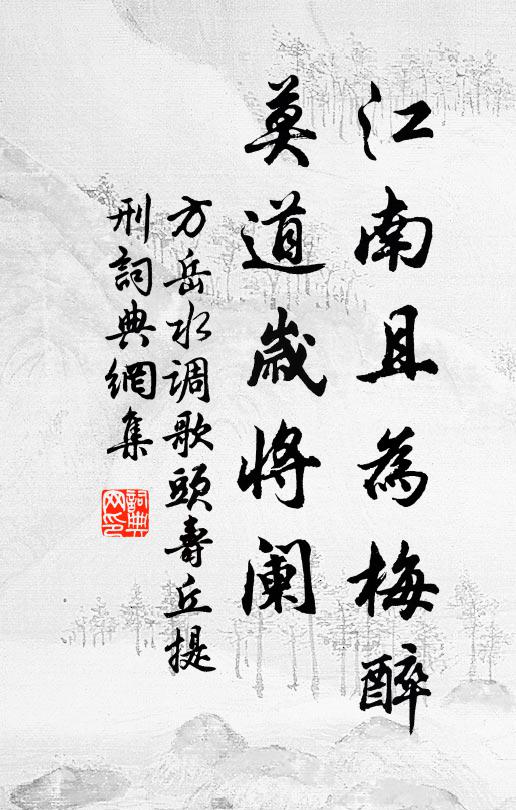 江南且為梅醉
莫道歲將阑
方岳水调歌頭壽丘提
刑詞典網集
詞典
网印